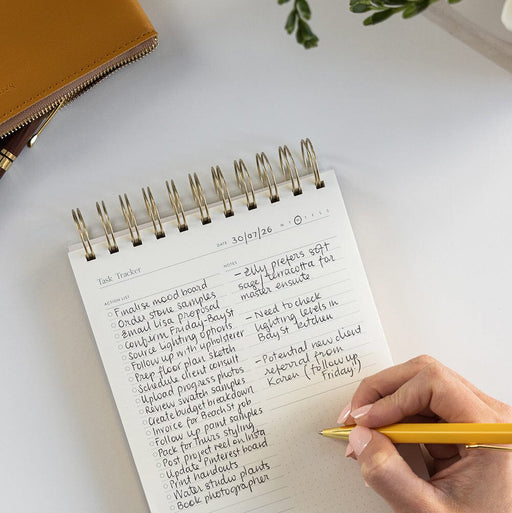 Task Tracker
DATE 30/07/26 M T W T F S S
ACTION LIST
Finalise mood board
Order stone samples
Email Lisa proposal
Confirm Friday Bay St
Source lighting options
Follow up with upholsterer
Prep floor plan sketch
Schedule client consult
Upload progress photos
Review swatch samples
Create budget breakdown
Invoice for Beach St job
Follow up paint samples
Pack for Thurs styling
Post project reel on Insta
Update Pinterest board
Print handouts
Water studio plants
Book photographer
NOTES
- Elly prefers soft
sage/terracotta for
master ensuite
- Need to check
lighting levels in
Bay St kitchen
- Potential new client
referral from
Karen (follow up
Friday!)